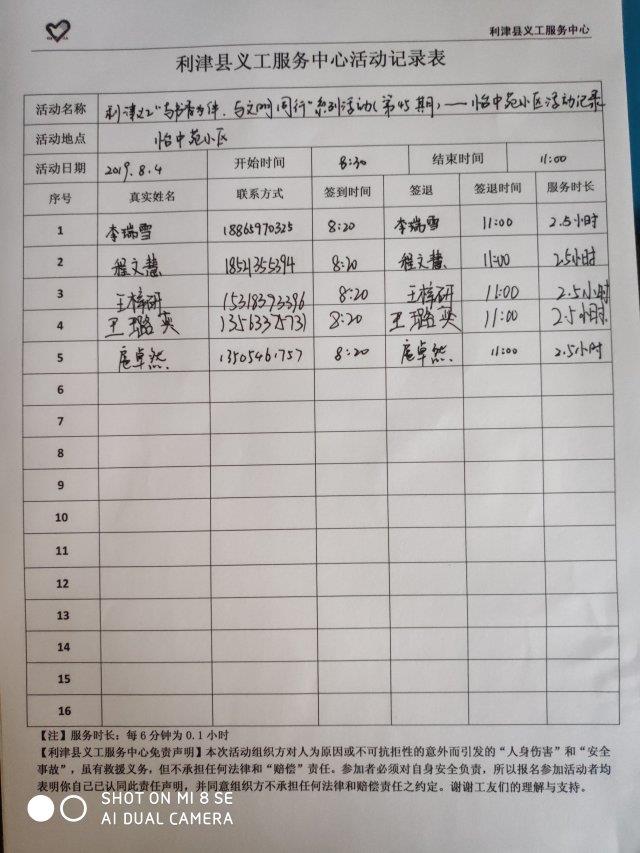 利津县义工服务中心
利津县义工服务中心活动记录表
活动名称 利津义工"与书香为伴，与文明同行"系列活动（第45期）——怡中苑小区活动记录
活动地点 怡中苑小区
活动日期 2019.8.4 开始时间 8:30 结束时间 11:00
序号 真实姓名 联系方式 签到时间 签退 签退时间 服务时长
1 李瑞雪 18865970325 8:20 李瑞雪 11:00 2.5小时
2 程文慧 18521355394 8:20 程文慧 11:00 2.5小时
3 王梓研 15318393396 8:20 王梓研 11:00 2.5小时
4 王璐英 13563375731 8:20 王璐英 11:00 2.5小时
5 扈卓然 13505461757 8:20 扈卓然 11:00 2.5小时
6
7
8
9
10
11
12
13
14
15
16
【注】服务时长：每6分钟为0.1小时
【利津县义工服务中心免责声明】本次活动组织方对人为原因或不可抗拒性的意外而引发的"人身伤害"和"安全
事故"，虽有救援义务，但不承担任何法律和"赔偿"责任。参加者必须对自身安全负责，所以报名参加活动者均
表明你自己已认同此责任声明，并同意组织方不承担任何法律和赔偿责任之约定。谢谢工友们的理解与支持。
SHOT ON MI 8 SE
AI DUAL CAMERA